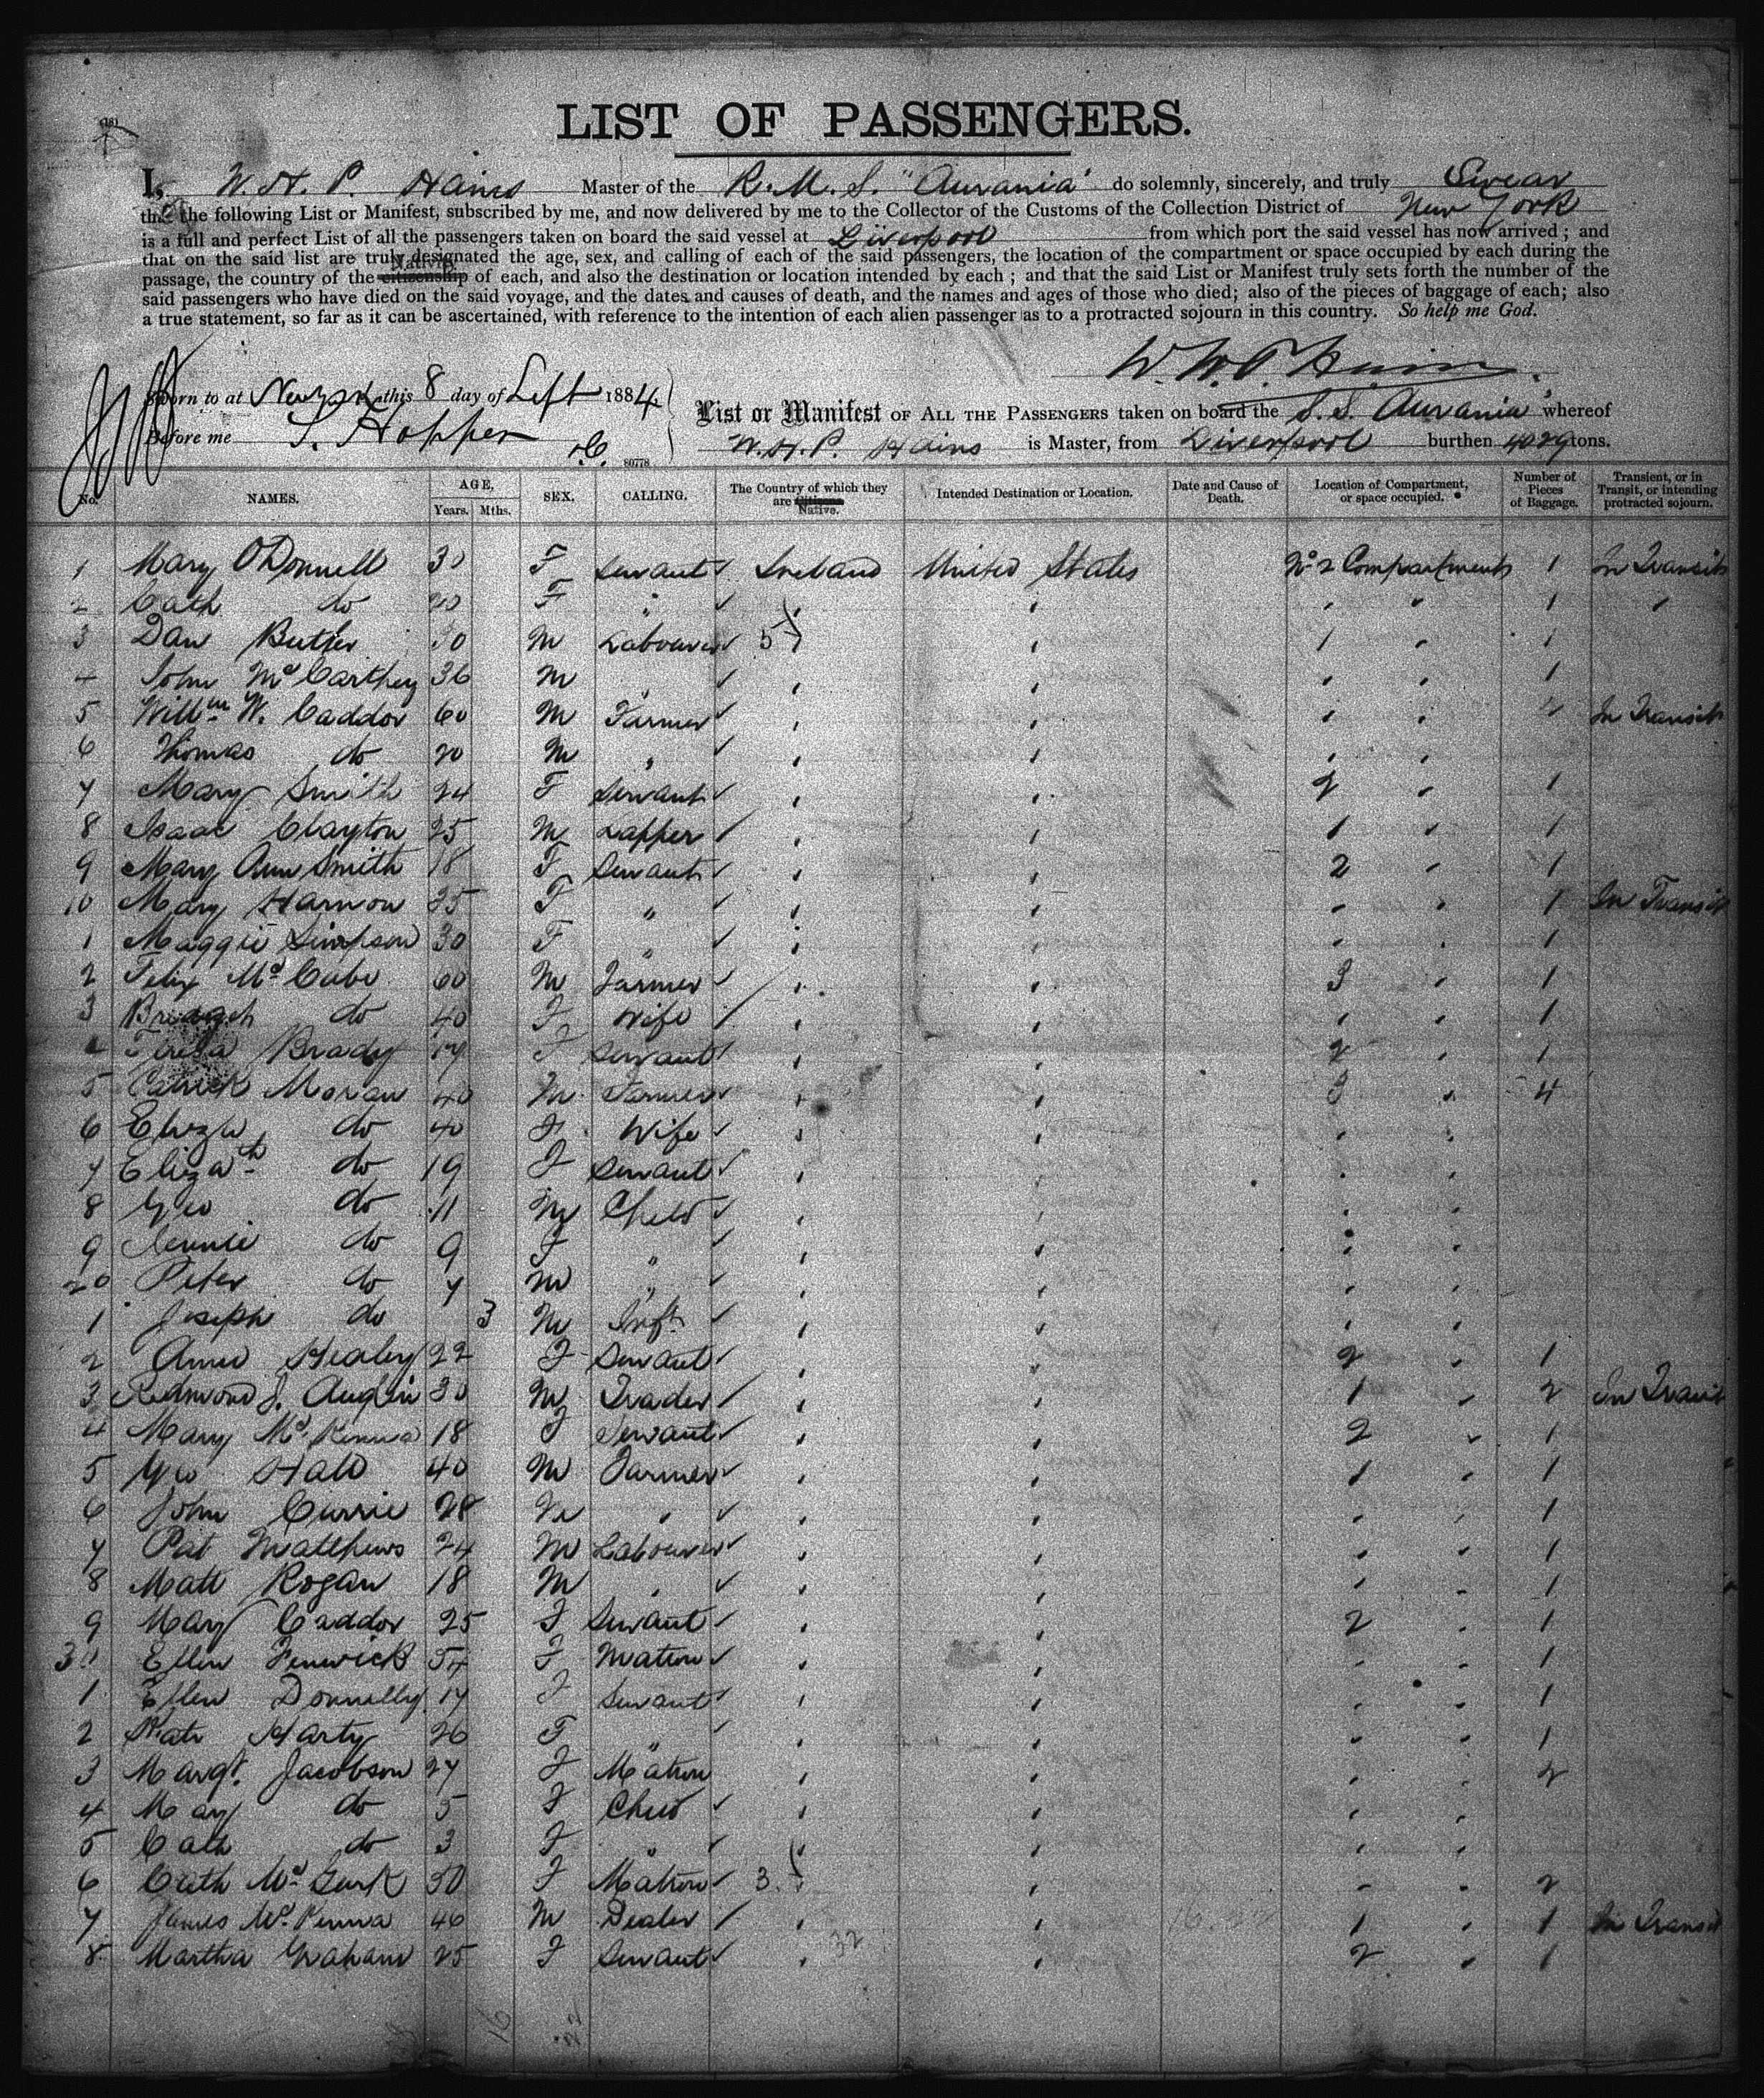 LIST OF PASSENGERS.
I, W. H. P. Hains Master of the R. M. S. "Aurania" do solemnly, sincerely, and truly Swear
that the following List or Manifest, subscribed by me, and now delivered by me to the Collector of the Customs of the Collection District of New York
is a full and perfect List of all the passengers taken on board the said vessel at Liverpool from which port the said vessel has now arrived ; and
that on the said list are truly designated the age, sex, and calling of each of the said passengers, the location of the compartment or space occupied by each during the
passage, the country of the citizenship Native of each, and also the destination or location intended by each ; and that the said List or Manifest truly sets forth the number of the
said passengers who have died on the said voyage, and the dates and causes of death, and the names and ages of those who died; also of the pieces of baggage of each; also
a true statement, so far as it can be ascertained, with reference to the intention of each alien passenger as to a protracted sojourn in this country. So help me God.
W. H. P. Hains
Sworn to at New York this 8 day of Sept 1884
Before me S. Hopper
D.C. 80778
List or Manifest OF ALL THE PASSENGERS taken on board the S. S. Aurania whereof
W. H. P. Hains is Master, from Liverpool burthen 4029 tons.
No. NAMES. AGE, Years. Mths. SEX. CALLING. The Country of which they are Citizens Native. Intended Destination or Location. Date and Cause of Death. Location of Compartment, or space occupied. Number of Pieces of Baggage. Transient, or in Transit, or intending protracted sojourn.
1 Mary O'Donnell 30 F Servant Ireland United States No 2 Compartment 1 In Transit
2 Cath do 20 F " 1 "
3 Dan Butler 30 M Labourer 5 1 1
4 John McCarthey 36 M " 1
5 Willm W. Caddor 60 M Farmer 2 In Transit
6 Thomas do 20 M "
7 Mary Smith 24 F Servant 2 1
8 Isaac Clayton 25 M Lapper 1 1
9 Mary Ann Smith 18 F Servant 2 1
10 Mary Harnon 35 F " 1 In Transit
1 Maggie Simpson 30 F " 1
2 Felix McCabe 60 M Farmer 3 1
3 do 40 F Wife 1
4 Teresa Brady 17 F Servant 2 1
5 Patrick Moran 40 M Farmer 3 4
6 Eliza do 40 F Wife
7 Elizath do 19 F Servant
8 Geo do 11 M Child
9 Jennie do 9 F "
20 Peter do 7 M "
1 Joseph do 3 M Inft
2 Annie Healey 22 F Servant 2 1
3 Redmond J. 30 M Trader 1 2 In Transit
4 Mary McKenna 18 F Servant 2 1
5 Geo Hall 40 M Farmer 1 1
6 John Currie 28 M " 1
7 Pat Matthews 24 M Labourer 1
8 Matt Rogan 18 M " 1
9 Mary Caddor 25 F Servant 2 1
30 Ellen Fenwick 54 F Matron 1
1 Ellen Donnelly 17 F Servant 1
2 Kate Harty 26 F " 1
3 Margt. Jacobson 27 F Matron 2
4 Mary do 5 F Child
5 Cath do 3 F "
6 Cath McGurk 50 F Matron 3 2
7 James McKenna 46 M Dealer 1 1 In Transit
8 Martha Graham 25 F Servant 2 1